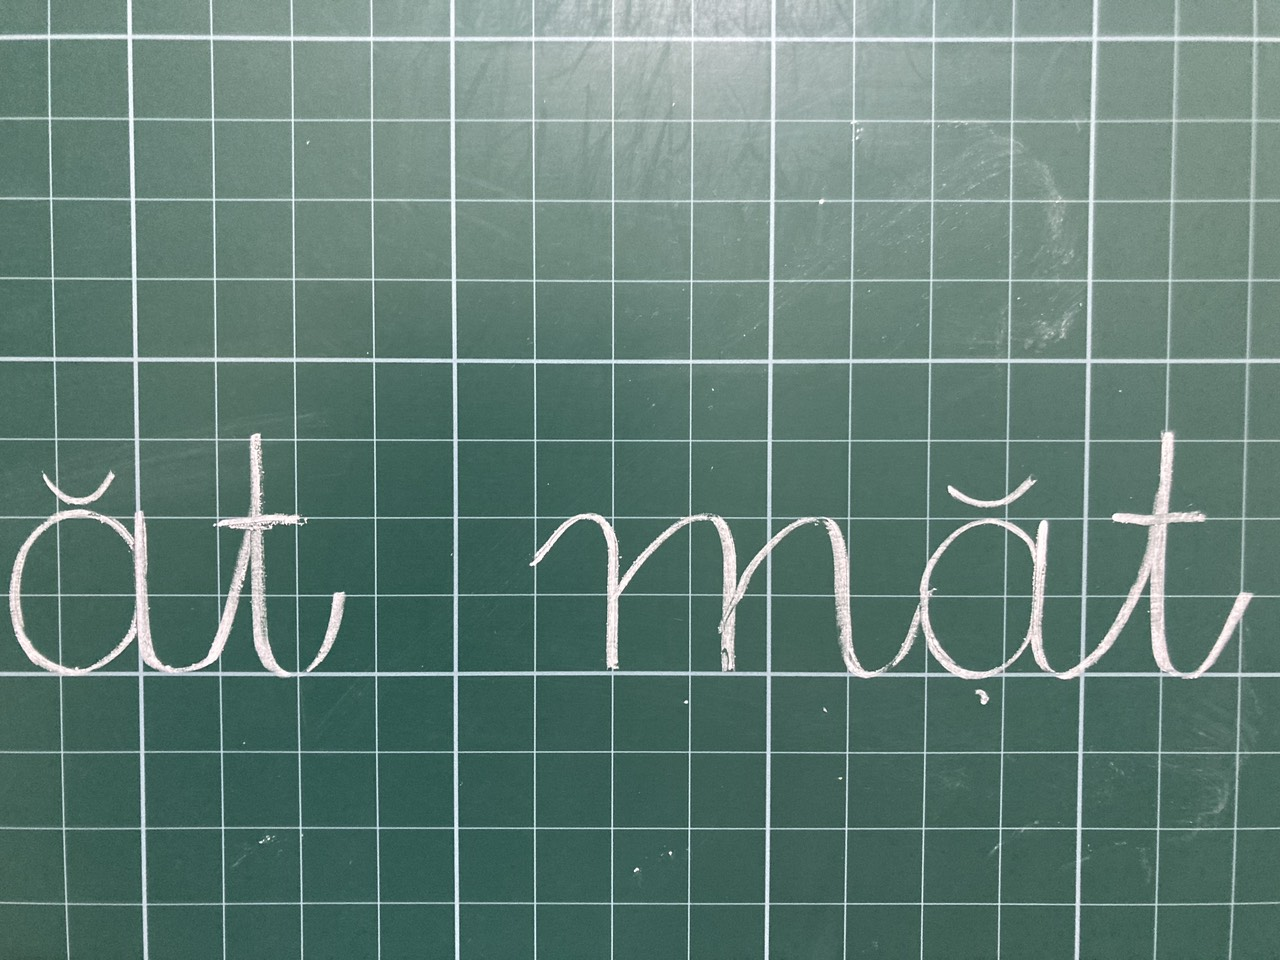 ăt mặt